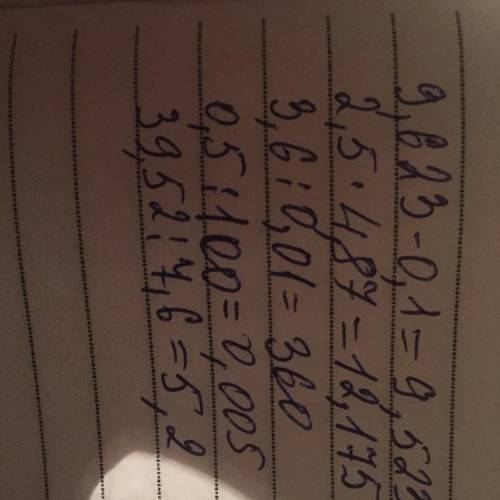 9,623-0,1=9,523
2,5·4,87=12,175
3,6:0,01=360
0,5:100=0,005
39,52:7,6=5,2